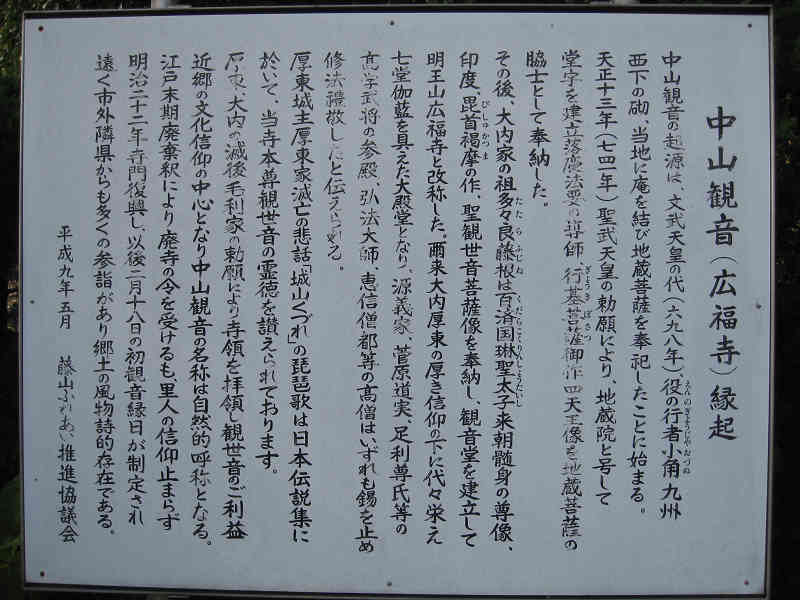 中山観音（広福寺）縁起
中山観音の起源は、文武天皇の代（六九八年）、役の行者小角九州
西下の砌、当地に庵を結び地蔵菩薩を奉祀したことに始まる。
天正十三年（七四一年）聖武天皇の勅願により、地蔵院と号して
堂宇を建立落慶法要の導師、行基菩薩御作四天王像を地蔵菩薩の
脇士として奉納した。
その後、大内家の祖多々良藤根は百済国琳聖太子来朝髄身の尊像、
印度、毘首褐摩の作、聖観世音菩薩像を奉納し、観音堂を建立して
明王山広福寺と改称した。爾来大内厚東の厚き信仰の下に代々栄え
七堂伽藍を具えた大殿堂となり、源義家、菅原道実、足利尊氏等の
高名武将の参殿、弘法大師、恵信僧都等の高僧はいずれも錫を止め
修法禮敬したと伝えらる。
厚東城主厚東家滅亡の悲話「城山くづれ」の琵琶歌は日本伝説集に
於いて、当寺本尊観世音の霊徳を讃えられております。
厚東、大内の滅後毛利家の勅願により寺領を拝領し観世音のご利益
近郷の文化信仰の中心となり中山観音の名称は自然的呼称となる。
江戸末期廃棄釈により廃寺の令を受けるも、里人の信仰止まらず
明治二十二年寺門復興し、以後二月十八日の初観音縁日が制定され
遠く市外隣県からも多くの参詣があり郷土の風物詩的存在である。
平成九年五月　藤山ふれあい推進協議会